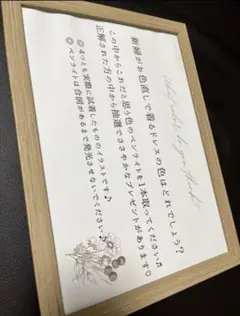 What color do you think?
新婦がお色直しで着るドレスの色はどれでしょう？
この中からこれだと思う色のペンライトを1本取ってください♬
正解された方の中から抽選でささやかなプレゼントがあります♡
◎ 4つとも実際に試着したもののイラストです♪
◎ ペンライトは合図があるまで発光させないでください♪